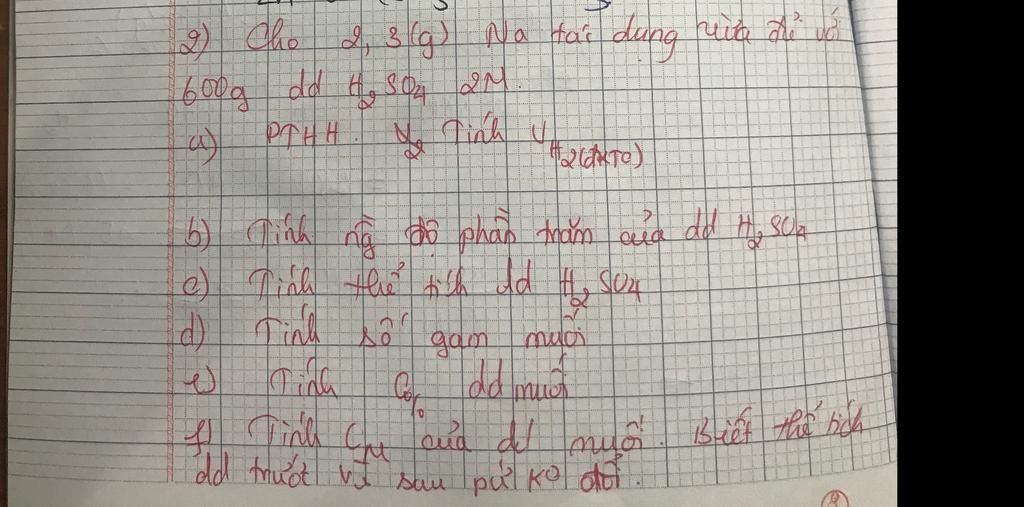 2) Cho 2,3(g) Na tác dụng vừa đủ với
600g dd H2SO4 2M.
a) PTHH. Tính VH2(đktc)
b) Tính độ phần trăm của dd H2SO4
c) Tính thể tích dd H2SO4
d) Tính số gam muối
e) Tính C% dd muối
f) Tính CM của dd muối. Biết thể tích
dd trướt và sau pứ ko đổi.